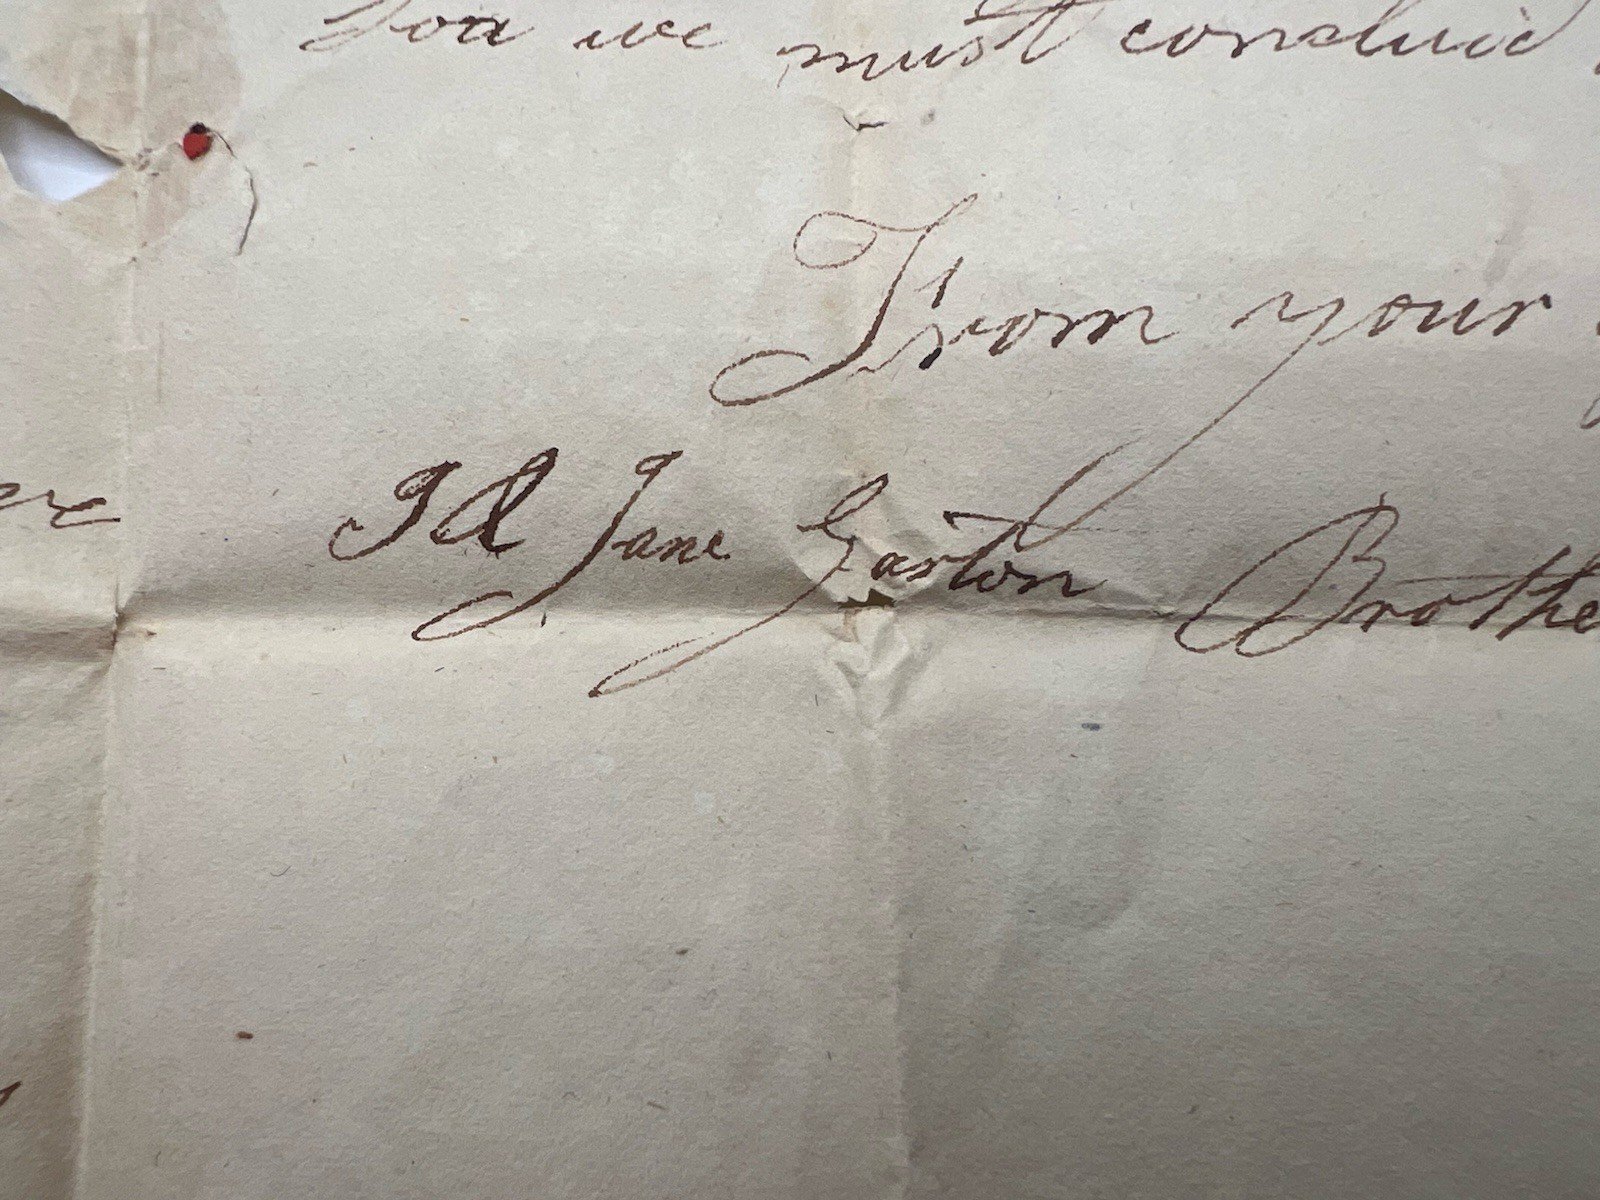 You we must concluid
From your
J & Jane Gaston Brothe